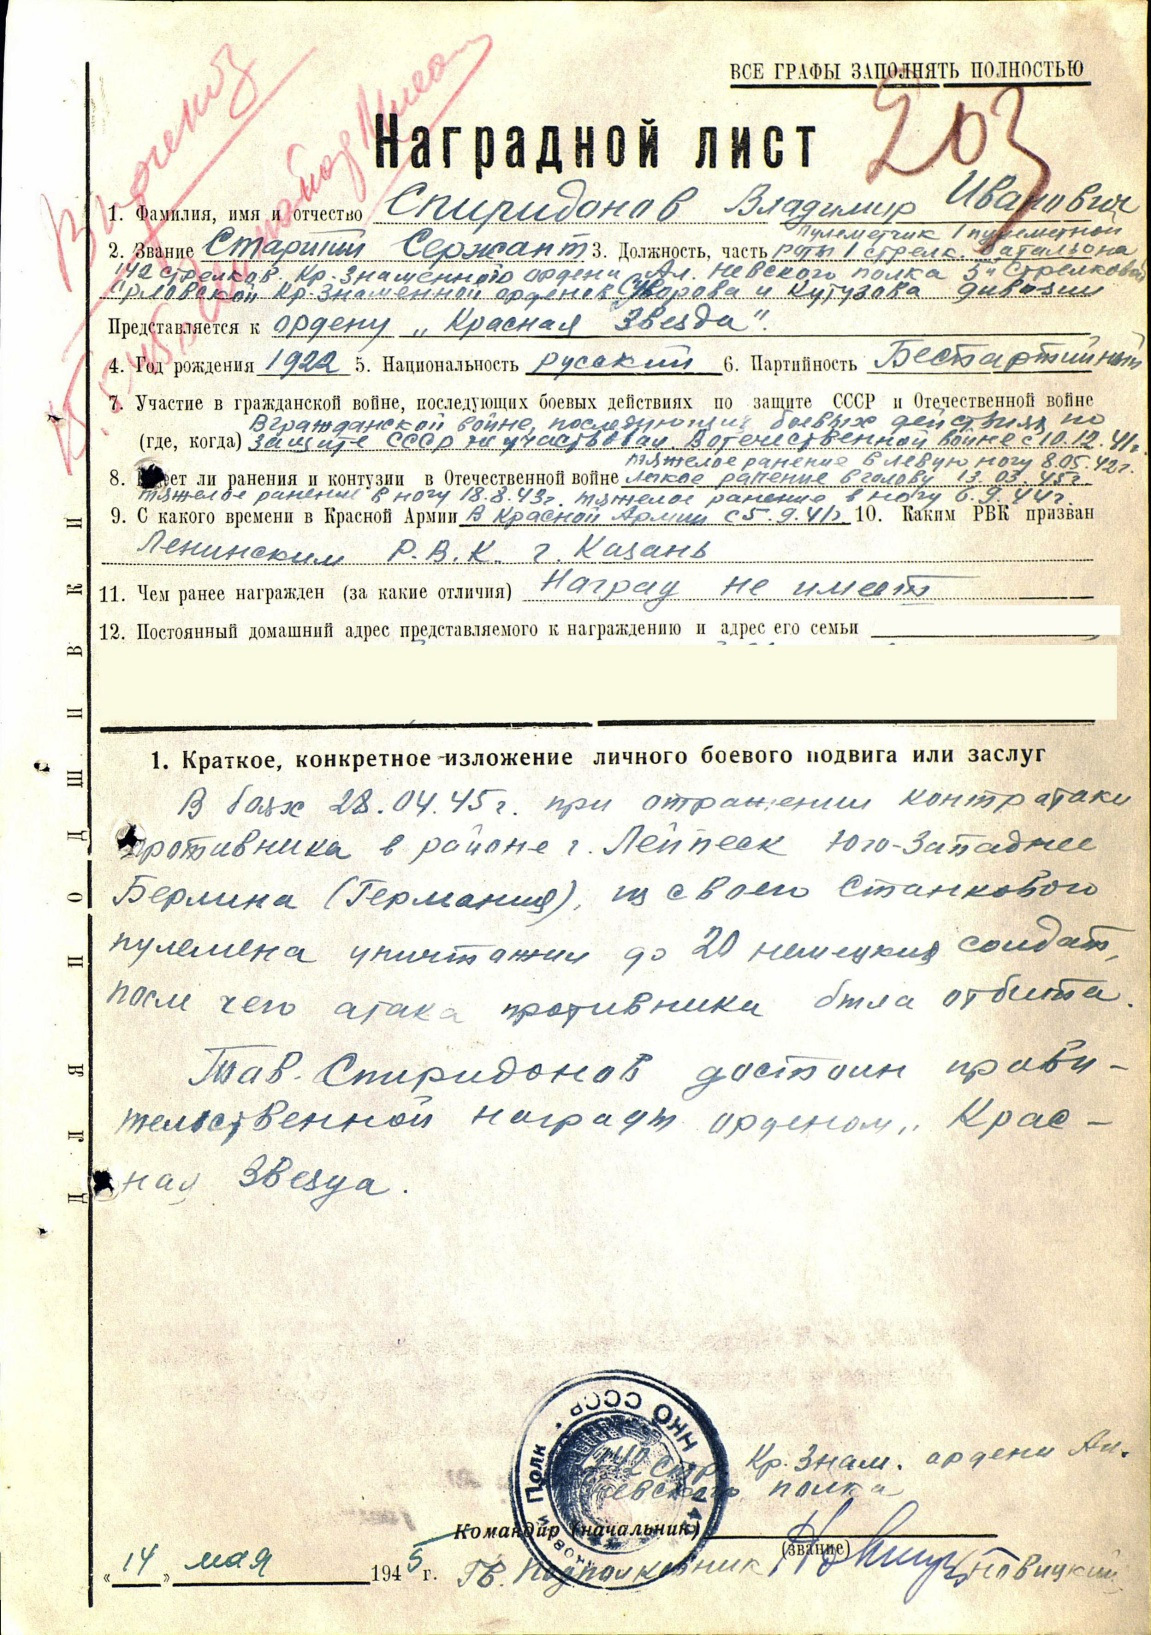 ВСЕ ГРАФЫ ЗАПОЛНЯТЬ ПОЛНОСТЬЮ
203
Наградной лист
1. Фамилия, имя и отчество Спиридонов Владимир Иванович
2. Звание Старший Сержант 3. Должность, часть Пулеметчик 1 пулеметной роты 1 стрелк. батальона
142 стрелков. Кр. Знаменного ордена Ал. Невского полка 5й Стрелковой
Орловской Кр. Знаменной орденов Суворова и Кутузова дивизии
Представляется к ордену „Красная Звезда".
4. Год рождения 1922 5. Национальность русский 6. Партийность Беспартийный
7. Участие в гражданской войне, последующих боевых действиях по защите СССР и Отечественной войне
В гражданской войне, последующих боевых действиях по
(где, когда) защите СССР не участвовал. В отечественной войне с 10.12.41г.
тяжелое ранение в левую ногу 8.05.42г.
8. Имеет ли ранения и контузии в Отечественной войне Легкое ранение в голову 13.03.45г.
тяжелое ранение в ногу 18.8.43г. тяжелое ранение в ногу 6.9.44г.
9. С какого времени в Красной Армии В Красной Армии с 5.9.41г. 10. Каким РВК призван
Ленинским Р.В.К. г. Казань
11. Чем ранее награжден (за какие отличия) Наград не имеет
12. Постоянный домашний адрес представляемого к награждению и адрес его семьи
ДЛЯ ПОДШИВКИ
1. Краткое, конкретное изложение личного боевого подвига или заслуг
В боях 28.04.45г. при отражении контратаки
противника в районе г. Лейпеск Юго-Западнее
Берлина (Германия), из своего Станкового
пулемена уничтожил до 20 немецких солдат,
после чего атака противника была отбита.
Тов. Спиридонов достоин прави-
тельственной награды орденом „Крас-
ная Звезда.
НКО СССР
142 Стр. Кр. Знам. ордена Ал.
Невского полка
Командир (начальник)
(звание)
„14" мая 1945 г. Гв. Подполковник Новицкий